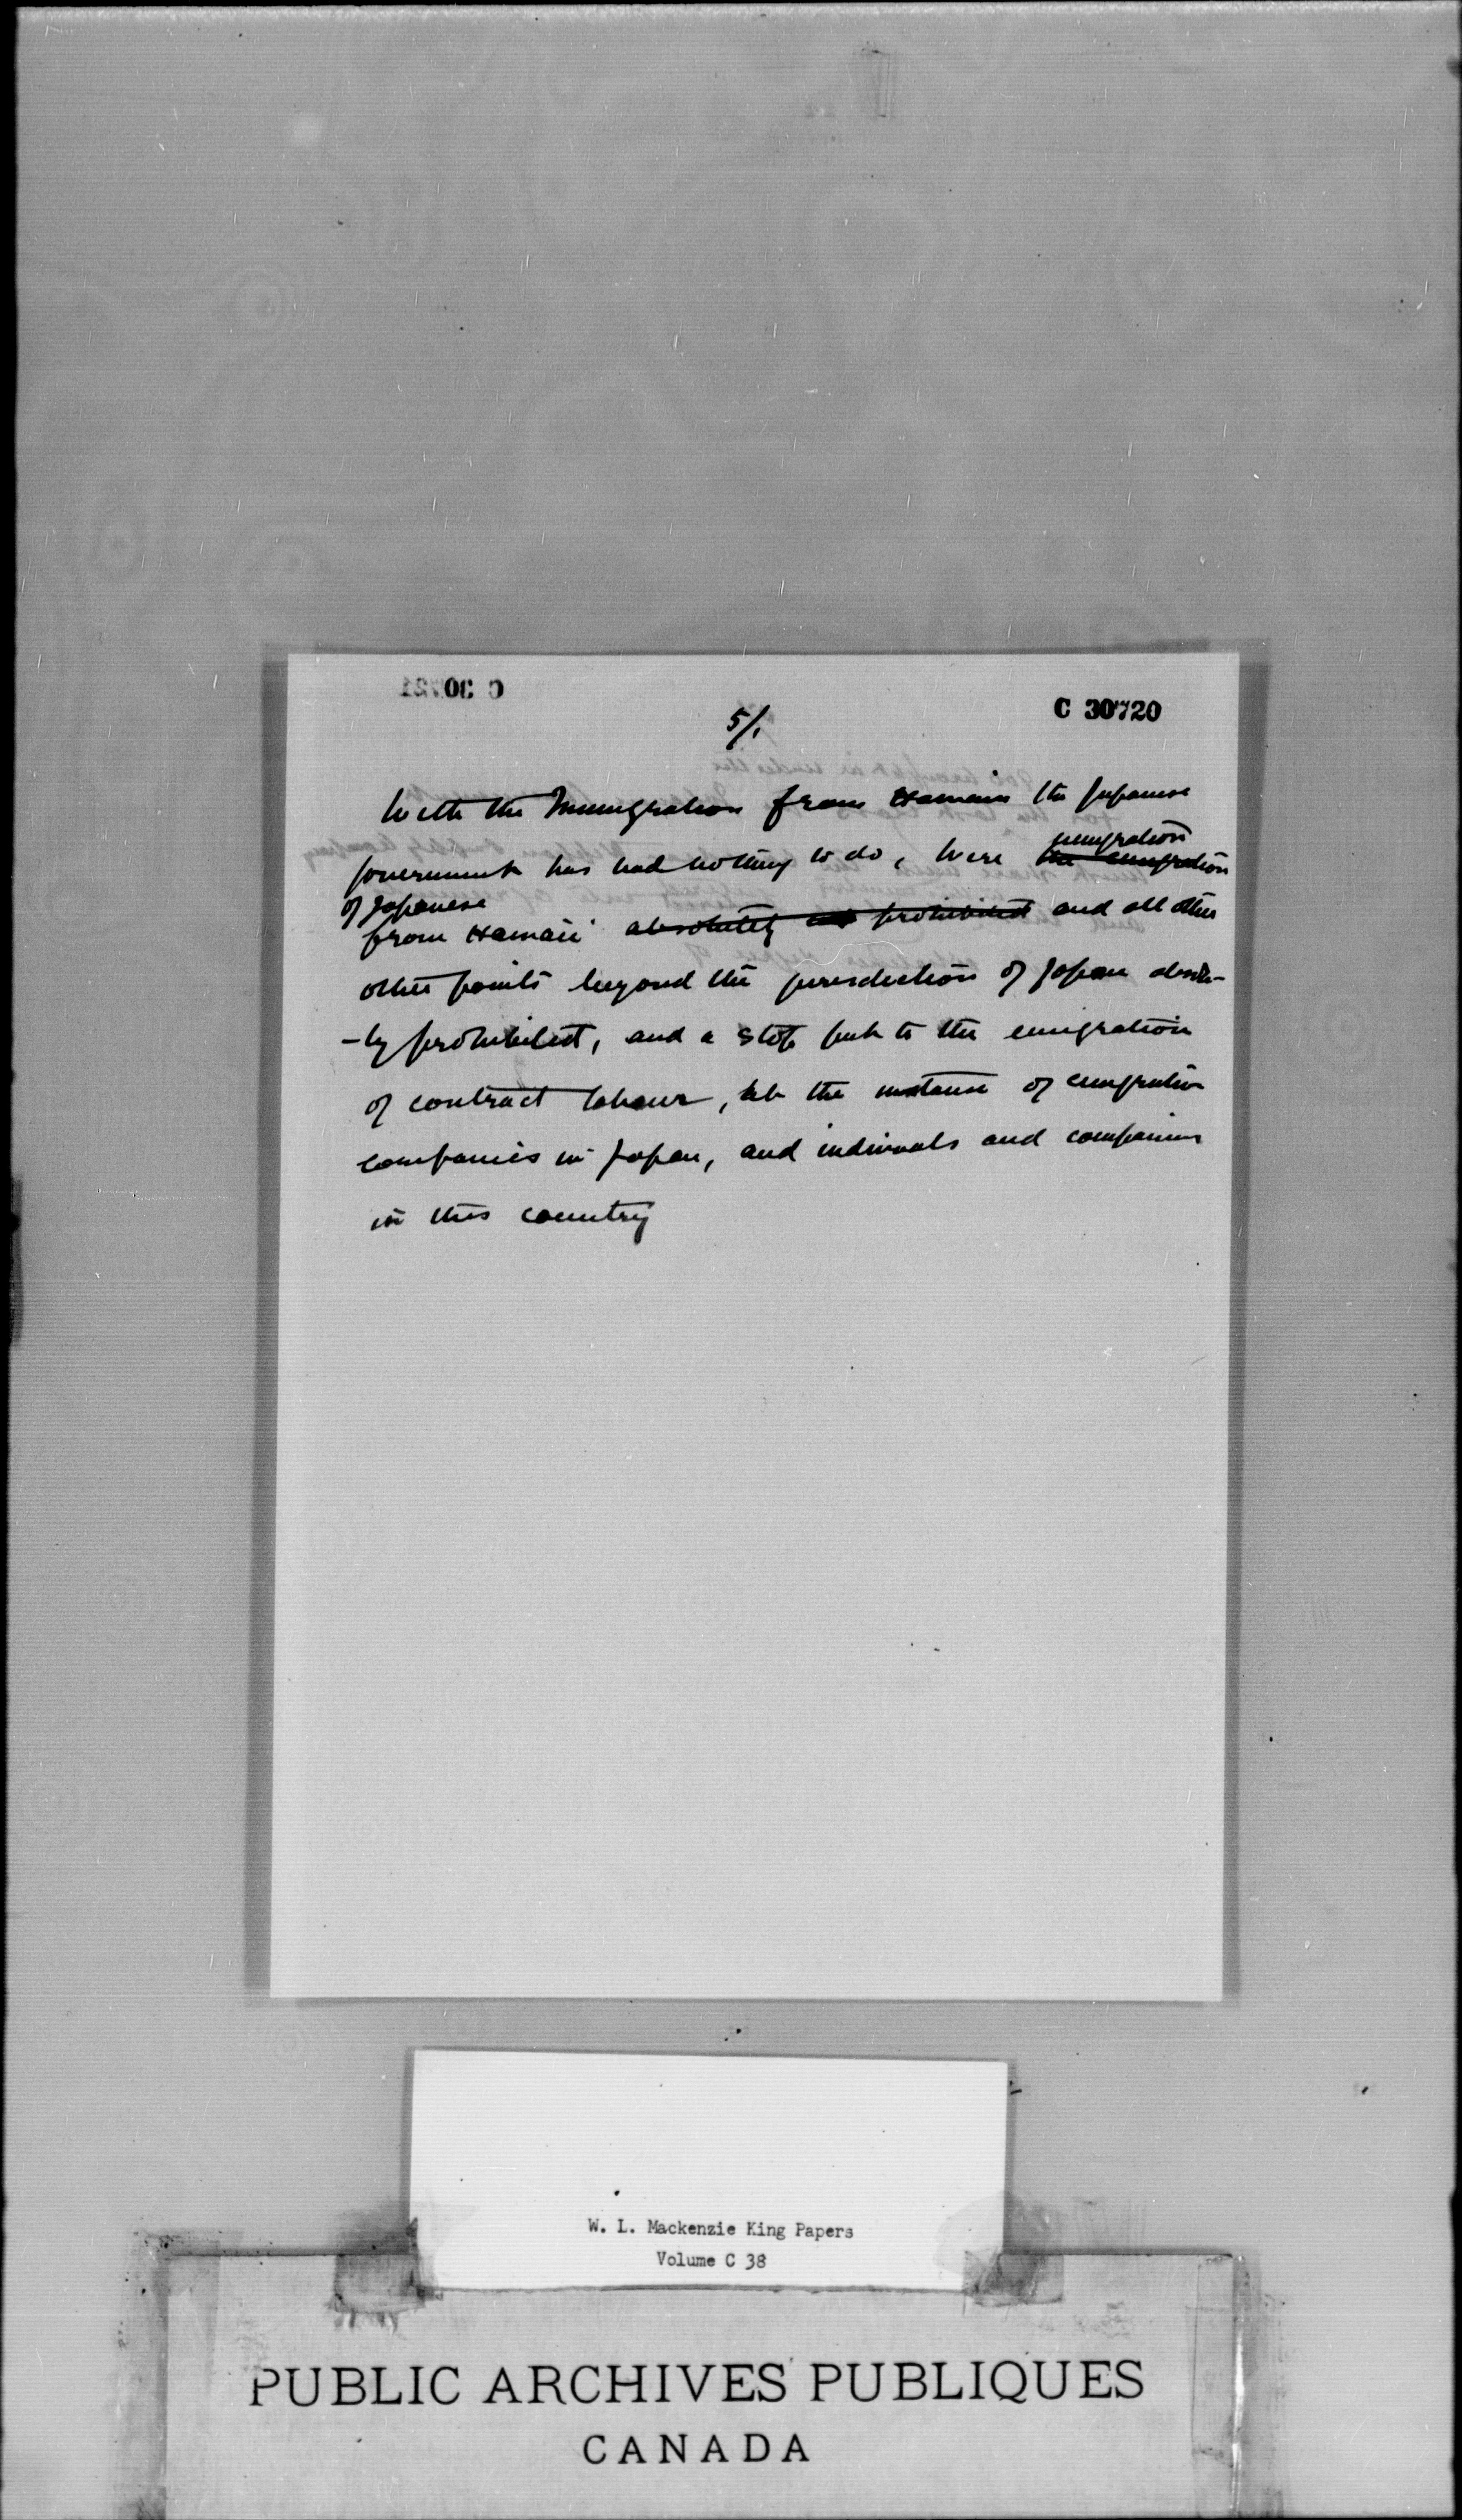 C 30721
C 30720
5/.
With the Immigration from Hawaii the Japanese
immigration
government has had nothing to do, Were the emigration
of Japanese
from Hawaii absolutely prohibited and all other
other points beyond the jurisdiction of Japan absolute-
-ly prohibited, and a stop put to the emigration
of contract labour, at the instance of emigration
companies in Japan, and indivuals and companies
in this country
W. L. Mackenzie King Papers
Volume C 38
PUBLIC ARCHIVES PUBLIQUES
CANADA